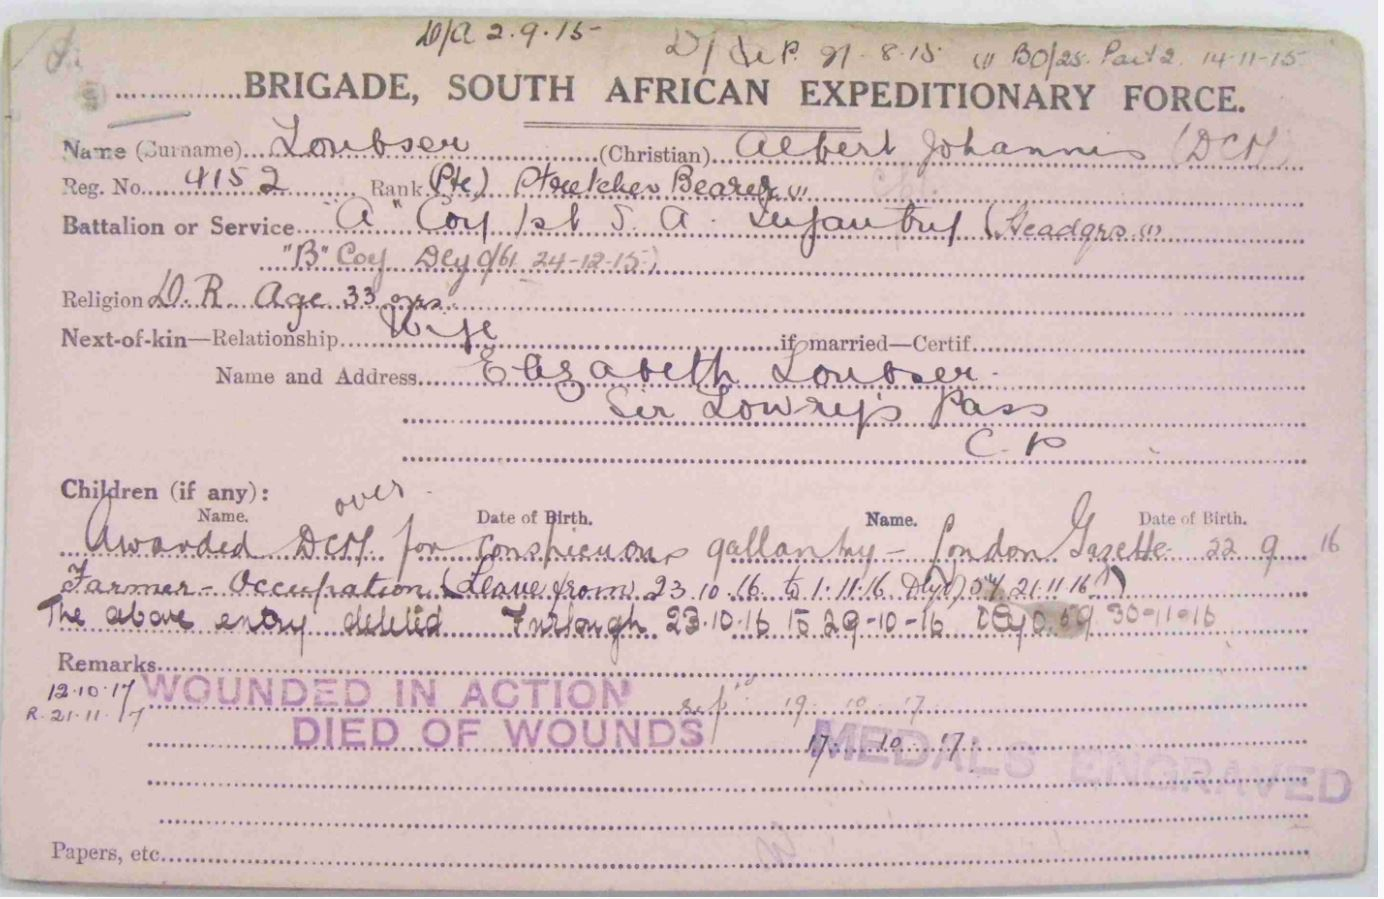 D/A 2.9.15 D/ 21-8-15 (1) BO/25. Part 2. 14-11-15
BRIGADE, SOUTH AFRICAN EXPEDITIONARY FORCE.
Name (Surname) Loubser (Christian) Albert Johannis (DCM)
Reg. No. 4152 Rank (Pte) Stretcher Bearer (1)
Battalion or Service "A" Coy 1st S. A. Infantry (Headqrs (1)
"B" Coy 24-12-15)
Religion D. R. Age 33 yrs.
Next-of-kin—Relationship Wife if married—Certif.
Name and Address Elizabeth Loubser.
Sir Lowry's Pass
C. P
Children (if any): over
Name. Date of Birth. Name. Date of Birth.
Awarded DCM for conspicuous gallantry - London Gazette 22 9 16
Farmer - Occupation (Leave from 23.10.16 to 1.11.16 21.11.16)
The above entry deleted Furlough 23.10.16 to 29-10-16 30-11-16
Remarks
12.10.17 WOUNDED IN ACTION 19 10 17
R. 21.11.17 DIED OF WOUNDS 17 10 17
MEDALS ENGRAVED
Papers, etc.